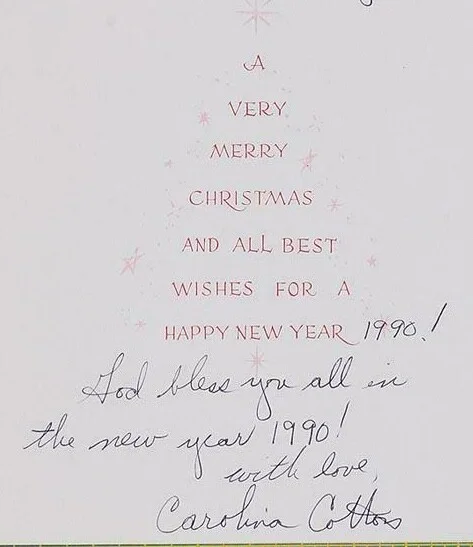 A
VERY
MERRY
CHRISTMAS
AND ALL BEST
WISHES FOR A
HAPPY NEW YEAR 1990!
God bless you all in
the new year 1990!
with love,
Carolina Cotton